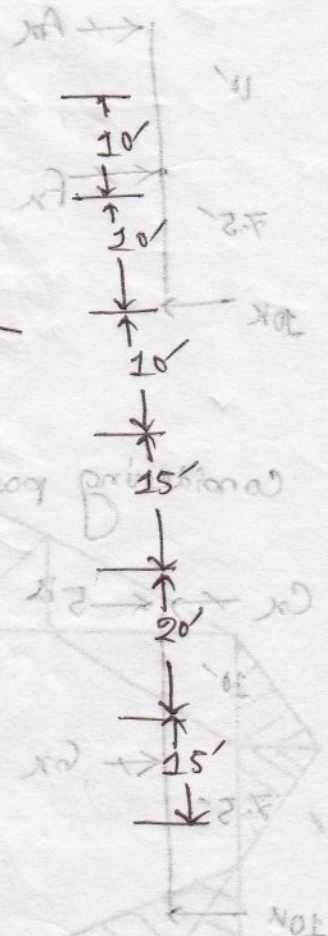 10'
10'
10'
15'
20'
15'